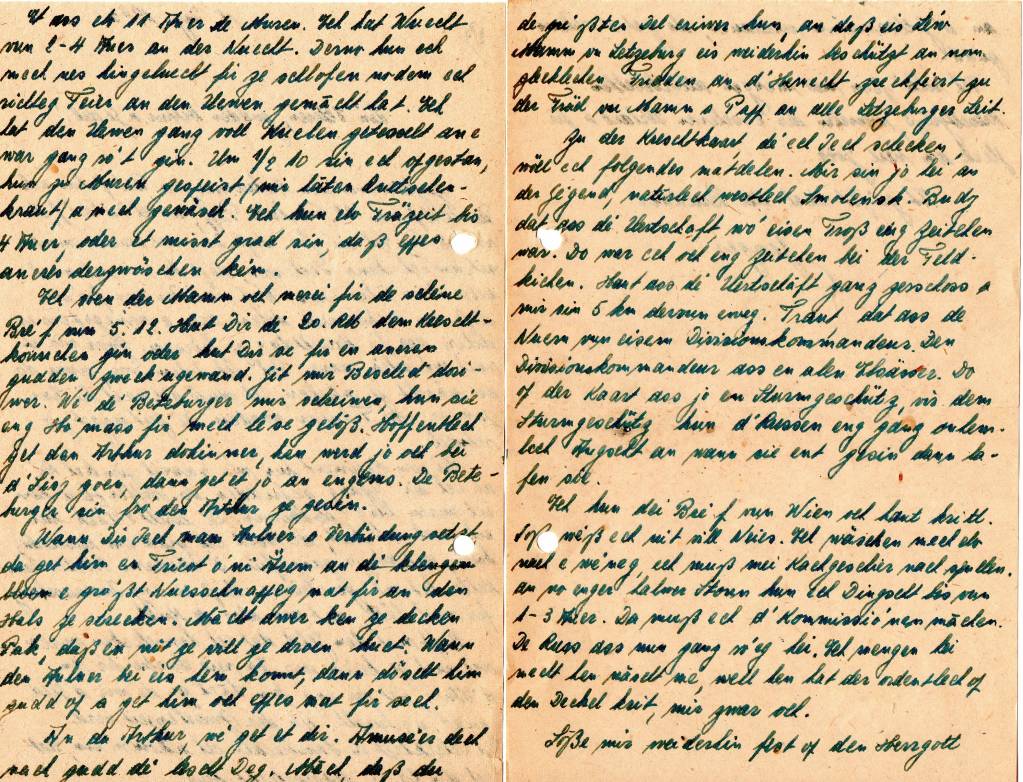 Et ass elo 11 Auer de Muren. Ech hat Wuecht
vun 2-4 Auer an der Nuecht. Dorno hun ech
mech nes hingeluecht fir ze schlofen nodem ech
richteg Feier an den Uewen gemächt hat. Ech
hat den Uewen gang voll Kuelen getosselt an e
war gang ro't gin. Um 1/2 10 sin ech opgestan,
hun zu Muren gespeist /mir täten
kraut/ a mech gewäsch. Ech hun elo Fräizeit bis
4 Auer, oder et misst grad sin, daß effes
aneres dergwöschen këm.
Ech soen der Mamm och merci fir de scheine
Bre'f vum 5. 12. Hut Dir de' 20. RM dem Krescht-
kennchen gin oder hut Dir se fir en aneren
gudden Zweck ugewand. Git mir Bescheed dori-
wer. We' de' Beteburger mir schreiwen, hun sie
eng Ho'mass fir mech le'se geloß. Hoffentlech
get dan Arthur dohinner, hän werd jo och bei
d'Sing goen, dann get et jo an engems. De Bete-
burger sin fro' den Arthur ze gesin.
Wann Dir Iech mam Hulner a Verbindung setzt
da get him en Tricot o'ni Äerm an de' klengen
e gro'ßt Nuesschnappeg mat fir an den
Hals ze strecken. Mächt awer ken ze decken
Pak, daß en nit ze vill ze droen huet. Wann
den Hulner bei eis hem komt, dann döscht him
gudd op a get him och effes mat fir sech.
An du Arthur, we' get et dir. Amuse'er dech
nach gudd de' lescht Deg. Mäch, daß du
de gre'ßten Del eriwer hun, an daß eis Le'w
Mamm vu Letzeburg eis weiderhin beschützt an vum
glecklechen Fridden an d'Hemecht zreckfe'ert zu
der Fröd vu Mamm a Papp an alle Letzeburger Leit.
Zu der Kreschtkaart de' ech Iech schecken,
wëll ech folgendes matdelen. Mir sin jo hei an
der Gegend, naturlech westlech Smolensk. Budy
dat ass de' Uertschaft wo' eisen Troß eng Zeitchen
war. Do war ech och eng Zeitchen bei der Feld-
kichen. Haut ass de' Uertschaft gang zerschloss a
mir sin 5 km dervun eweg. Traut dat ass de
Numm vun eisem Divisionskommandeur. Den
Divisionskommandeur ass en alen Elsässer. Do
op der Kaart ass jo en Sturmgeschütz, vir dem
Sturmgeschütz hun d'Russen eng gang
lech Angscht an wann sie ent gesin dann la-
fen sie.
Ech hun dei Bre'f vun Wien och haut kritt.
Soß weß ech nit vill Neies. Ech wäschen mech elo
nach e we'neg, ech muß mei Kachgescher nach spullen.
an no enger halwer Stonn hun ech Dingscht bis vun
1-3 Auer. Da muß ech d'Kommissio'nen mächen.
De Russ ass nun gang ro'eg hei. Ech mengen hei
mecht hen näischt me', well hen hat der ordentlech op
den Deckel krit, mir zwar och.
Loße mir weiderhin fest op den Herrgott